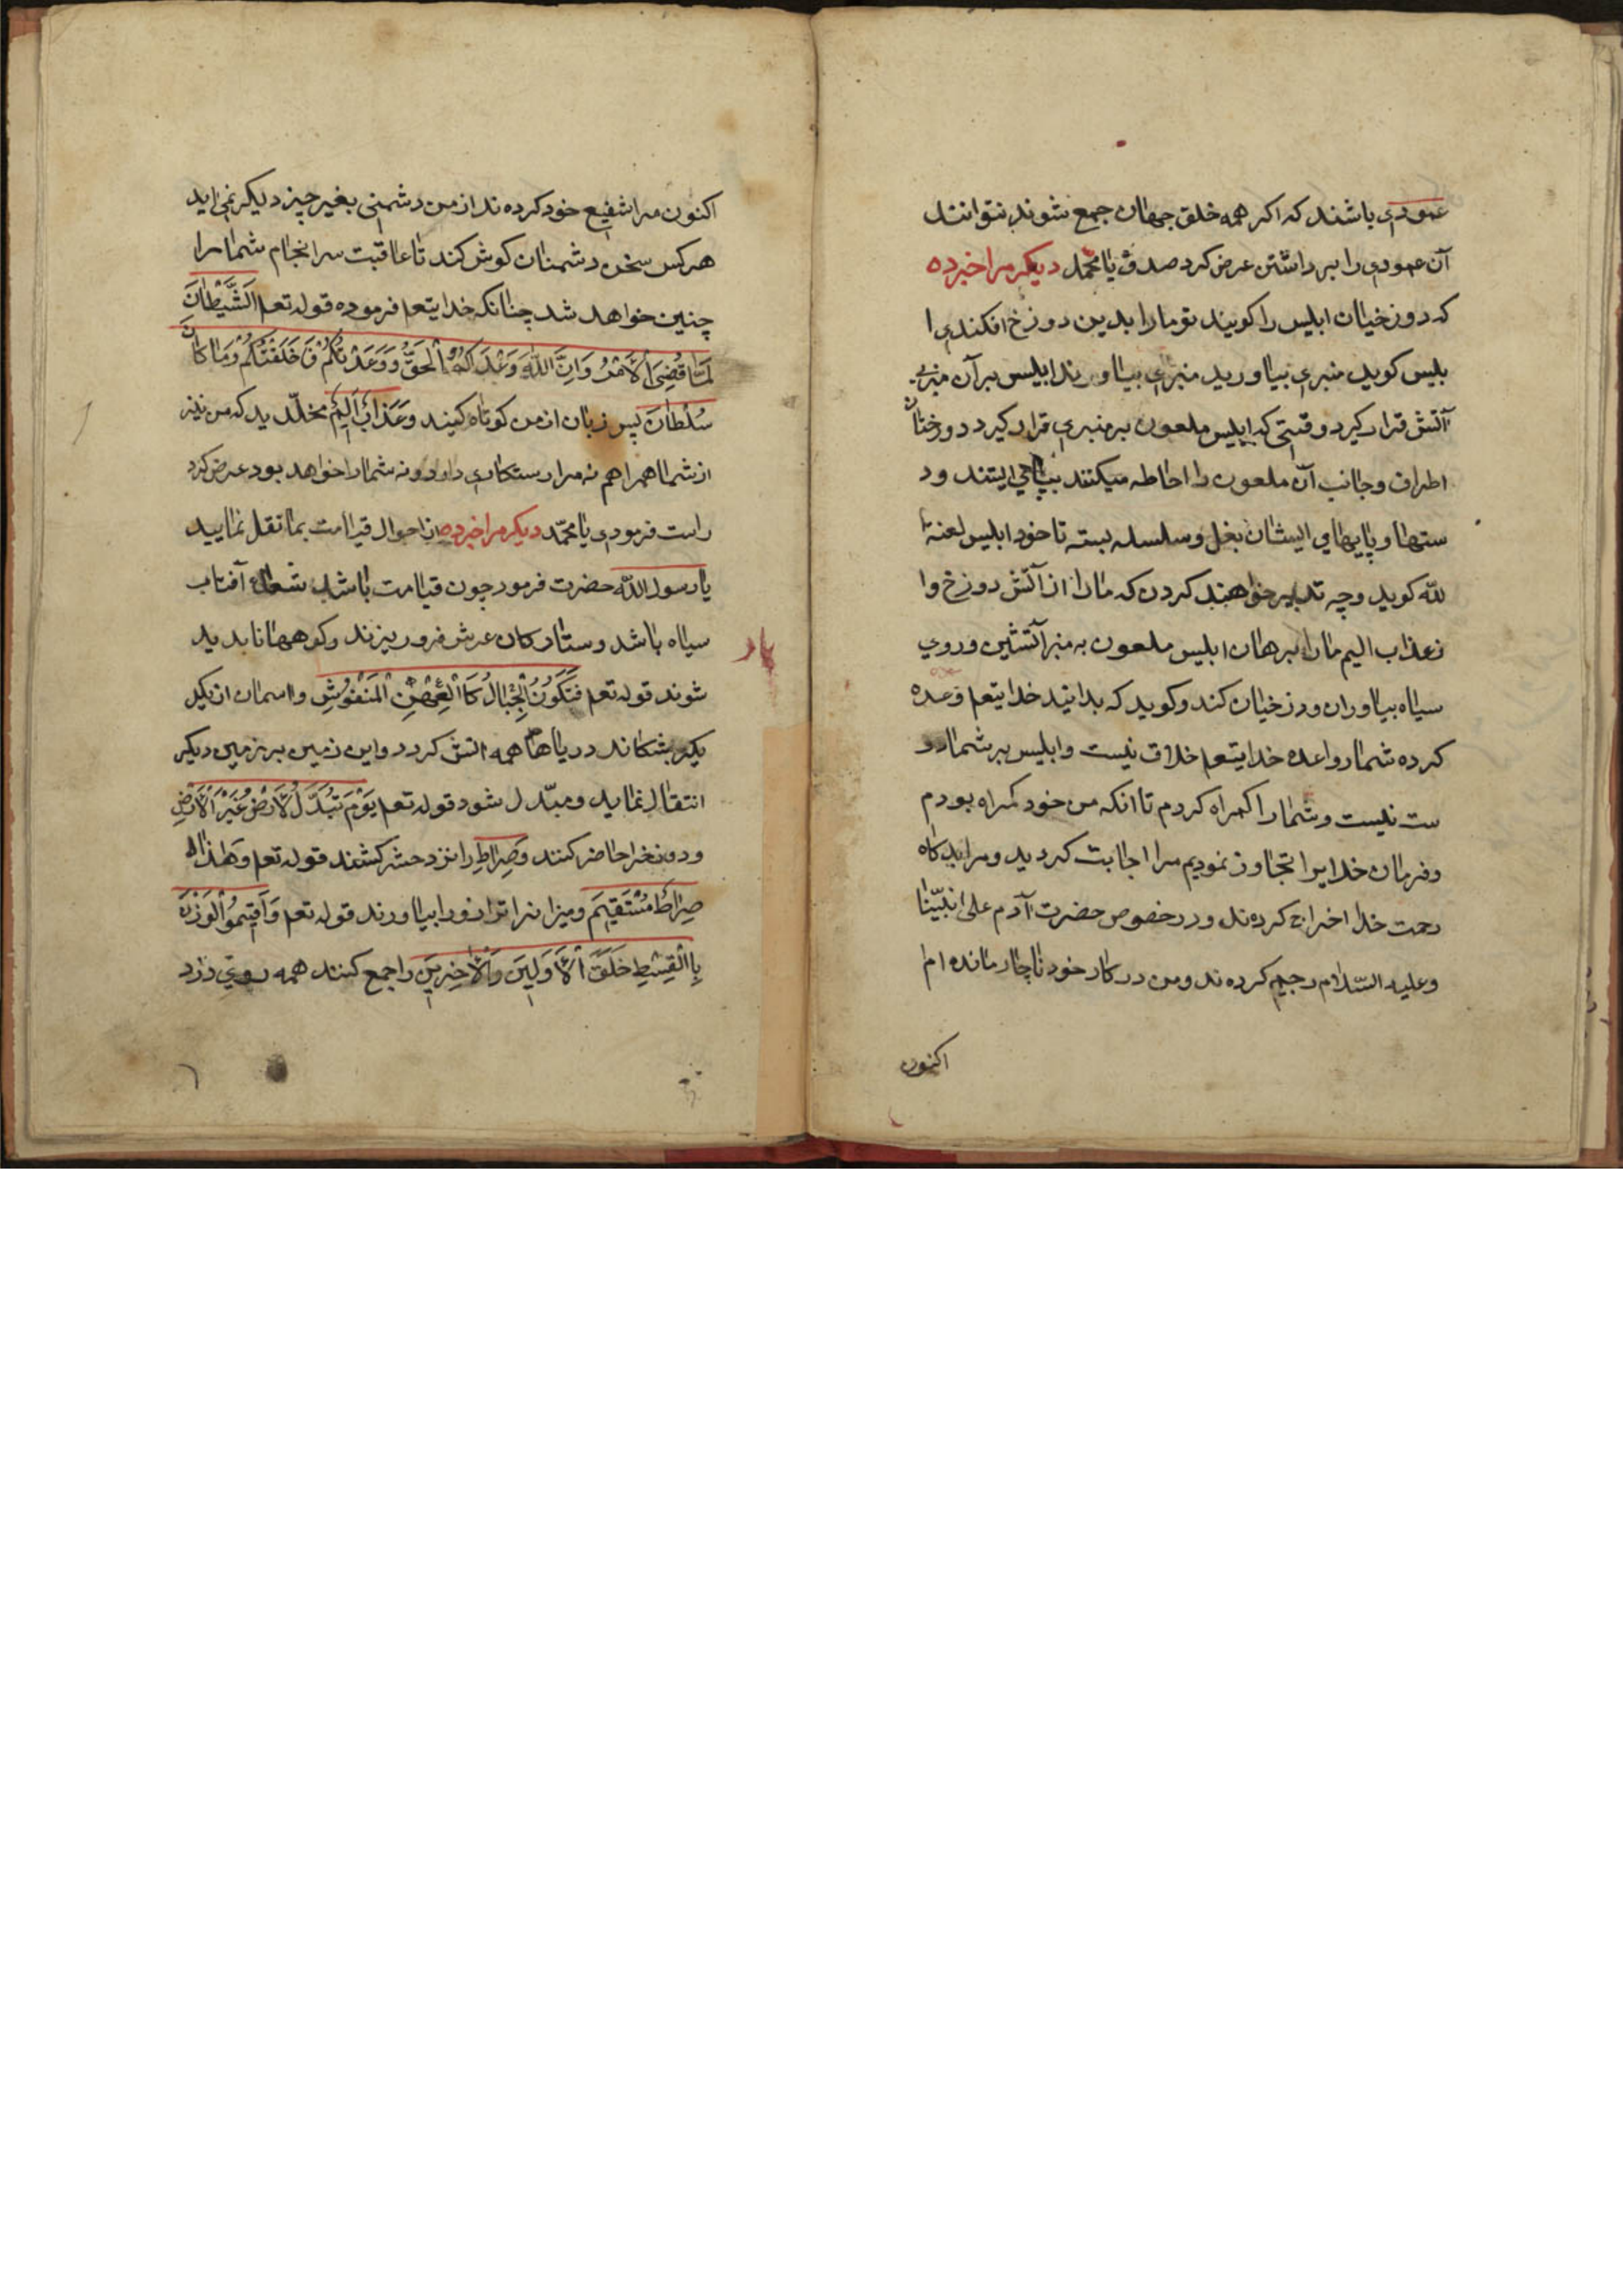 عمودی باشند که اکر همه خلق جهان جمع شوند نتوانند
آن عمودی را برداشتن عرض کرد صدق یا محمّد دیکر مرا خبرده
که دوزخیان ابلیس را کویند تو مارا بدین دوزخ افکندی ا
بلیس کوید منبری بیاورید منبری بیاورند ابلیس بر آن منبری
آتش قرار کیرد وقتی که ابلیس ملعون بر منبری قرار کیرد دوزخیان
اطراف وجانب آن ملعون را احاطه میکنند ایستند ود
ستها و پایهای ایشان بغل و سلسله بسته تا خود ابلیس لعنة ا
لله کوید وچه تدبیر خواهند کردن که مارا از آتش دوزخ وا
زعذاب الیم مارا برهان ابلیس ملعون به منبر آتشین وروی
سیاه بیاوران ودزخیان کند وکوید که بدانید خدایتعم وعده
کرده شمارواعده خدایتعم خلاف نیست وابلیس بر شما در
ست نیست وشمارا کمراه کردم تا انکه من خود کمراه بودم
وفرمان خدایرا تجاوز نمودیم مرا اجابت کردید ومرا بدکاه
رحمت خدا اخراج کردهند ودر خصوص حضرت آدم علی انبیّنا
وعلیه السّلام رجیم کردهند ومن در کار خود ناچار مانده ام
اکنون
اکنون مرا شفیع خود کردهند از من دشمنی بغیر چیز دیکر نمی اید
هرکس سخن دشمنان کوش کند تا عاقبت سرانجام شمارا
چنین خواهد شد چنانکه خدایتعم فرموده قوله تعم اَلشَّیْطَانَ
لَمَّا قُضِیَ الْاَمْرُ وَاِنَّ اللّٰهَ وَعْدَکُمُ الْحَقُّ وَوَعَدْتُکُمْ فَخَلَفْتُکُمْ وَمَا کَانَ
سُلْطَانَ پس زبان از من کوتاه کنید وَعَذَابٌ اَلِیْمٌ مخلّدید که من نیز
از شما همراهم نه مرا رستکاری داد ونه شمارا خواهد بود عرض کرد
راست فرمودی یا محمّد دیکر مرا خبرده از احوال قیامت بما نقل نمایید
یا رسول اللّٰه حضرت فرمود چون قیامت باشد شعاع آفتاب
سیاه باشد وستارکان عرش فرو ریزند وکوهها نابدید
شوند قوله تعم فَتَکُوْنُ الْجِبَالُ کَاالْعِهْنِ الْمَنْفُوْشِ واسمان از یکد
یکر بشکاند دریاها همه اتش کردد واین زمین بر زمین دیکر
انتقال نماید ومبدّل شود قوله تعم یَوْمَ تُبَدَّلُ الْاَرْضُ غَیْرَ الْاَرْضِ
ودوزخرا حاضر کنند وَصِرَاطِ را نزد حشر کشند قوله تعم وَهٰذَا
صِرَاطَ مُسْتَقِیْمَ ومیزانرا ترازورا بیاورند قوله تعم وَاَقِیْمُوا الْوَزْنَ
بِاالْقِسْطِ خَلَقَ الْاَوَلِیْنَ وَالْاَخِرِیْنَ را جمع کنند همه روی زرد